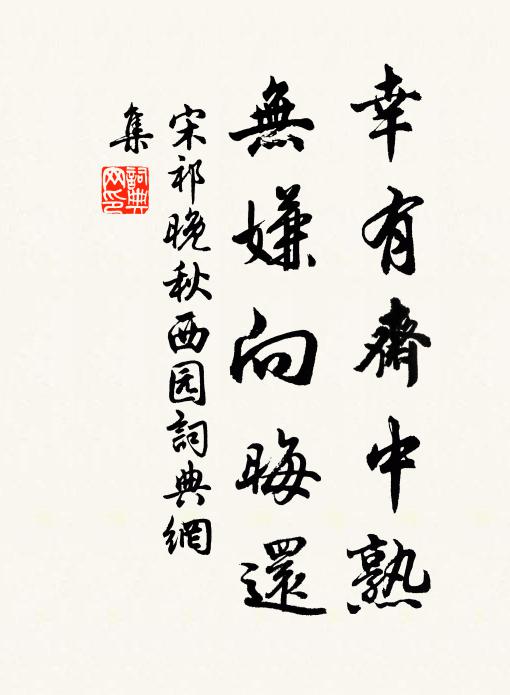 幸有齋中熟
無嫌向晦還
宋祁晚秋西园詞典網
集
詞典网印